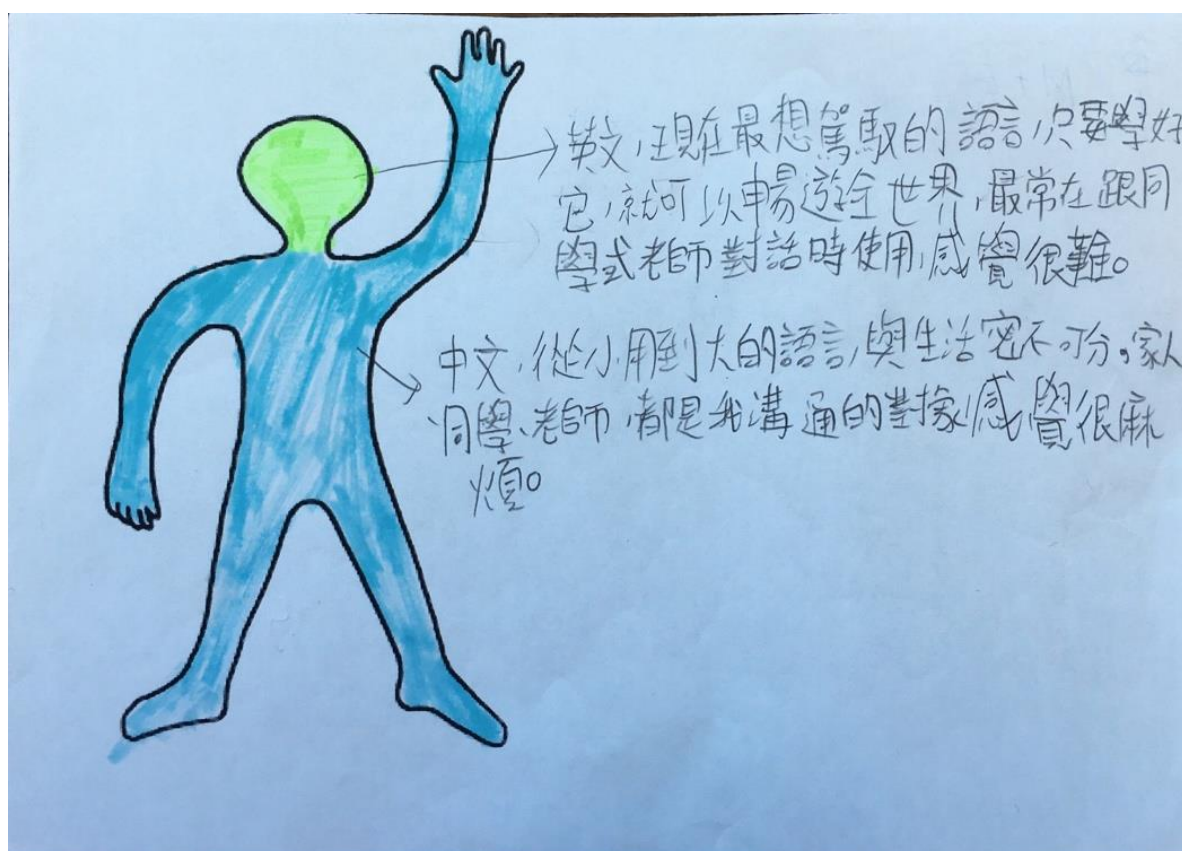 英文,現在最想駕馭的語言,只要學好
它,就可以暢遊全世界,最常在跟同
學或老師對話時使用,感覺很難。
中文,從小用到大的語言,與生活密不可分。家人
同學、老師,都是我溝通的對象,感覺很麻
煩。